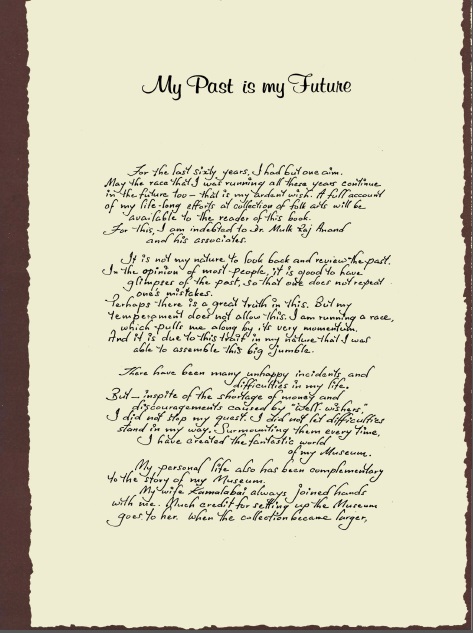 My Past is my Future
For the last sixty years, I had but one aim.
May the race that I was running all these years continue
in the future too - that is my ardent wish. A full account
of my life-long efforts at collection of folk arts will be
available to the reader of this book.
For this, I am indebted to Dr. Mulk Raj Anand
and his associates.
It is not my nature to look back and review the past.
In the opinion of most people, it is good to have
glimpses of the past, so that one does not repeat
one's mistakes.
Perhaps there is a great truth in this. But my
temperament does not allow this. I am running a race,
which pulls me along by its very momentum.
And it is due to this trait in my nature that I was
able to assemble this big jumble.
There have been many unhappy incidents and
difficulties in my life,
But - inspite of the shortage of money and
discouragements caused by "well-wishers,"
I did not stop my quest. I did not let difficulties
stand in my way. Surmounting them every time,
I have created the fantastic world
of my Museum.
My personal life also has been complementary
to the story of my Museum.
My wife Kamalabai always joined hands
with me. Much credit for setting up the Museum
goes to her. When the collection became larger,